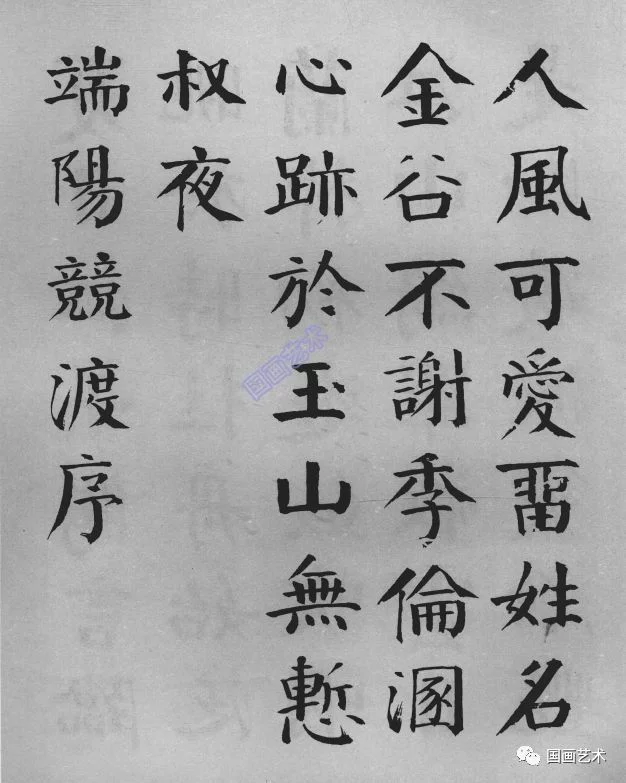 人風可愛畱姓名
金谷不謝季倫溷
心跡於玉山無慙
叔夜
端陽競渡序
国画艺术
国画艺术